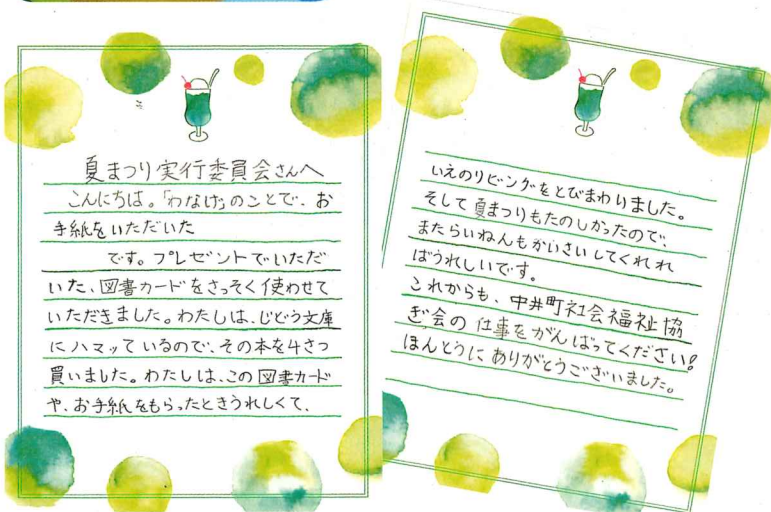 夏まつり実行委員会さんへ
こんにちは。「わなげ」のことで、お
手紙をいただいた
です。プレゼントでいただ
いた、図書カードをさっそく使わせて
いただきました。わたしは、じどう文庫
にハマっているので、その本を4さつ
買いました。わたしは、この図書カード
や、お手紙をもらったときうれしくて、
いえのリビングをとびまわりました。
そして夏まつりもたのしかったので、
またらいねんもかいさいしてくれれ
ばうれしいです。
これからも、中井町社会福祉協
ぎ会の仕事をがんばってください!
ほんとうにありがとうございました。